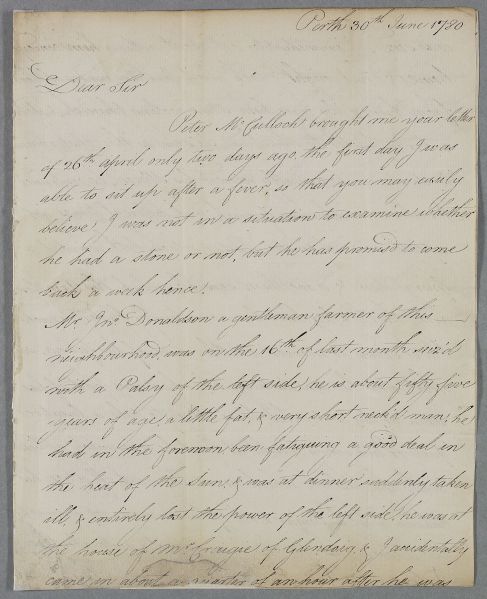 Perth 30th June 1780
Dear Sir
Peter McCulloch brought me your letter
of 26th april only two days ago, the first day I was
able to sit up after a fever, so that you may easily
believe I was not in a situation to examine whether
he had a stone or not, but he has promised to come
back a week hence.
Mr Jno Donaldson a gentleman farmer of this
neighbourhood, was on the 16th of last month seiz'd
with a Palsy of the left side, he is about fifty five
years of age, a little fat, & very short neck'd man, he
had in the forenoon been fatiguing a good deal in
the heat of the Sun, & was at dinner suddenly taken
ill, & entirely lost the power of the left side, he was at
the house of Mr Craigie of Glendoig, & I accidentally
came in about a quarter of an hour after he was